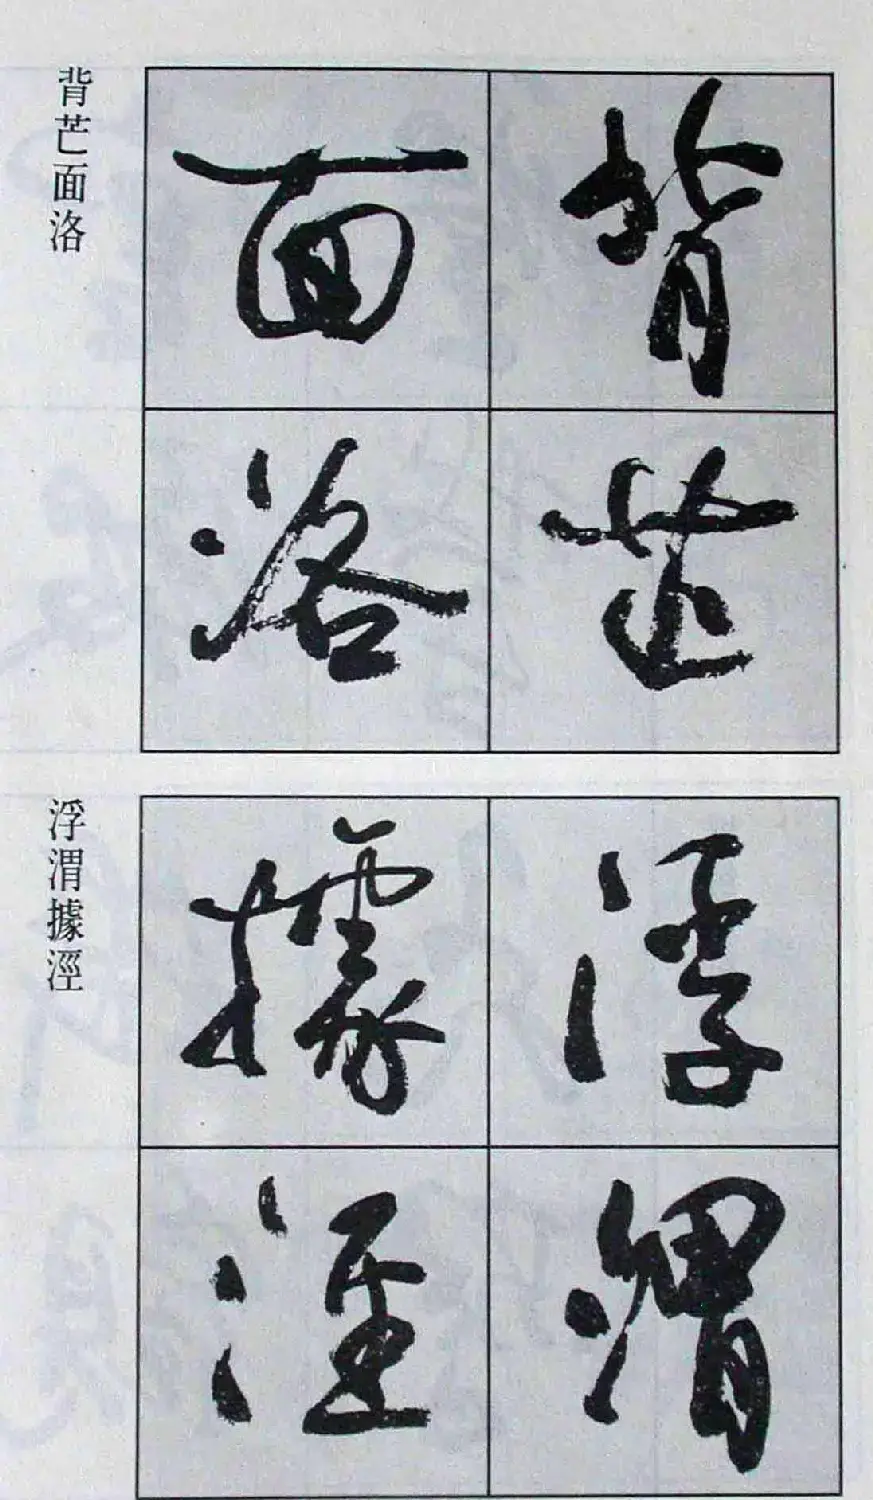 背芒面洛
背芒
面洛
浮渭據涇
浮渭
據涇